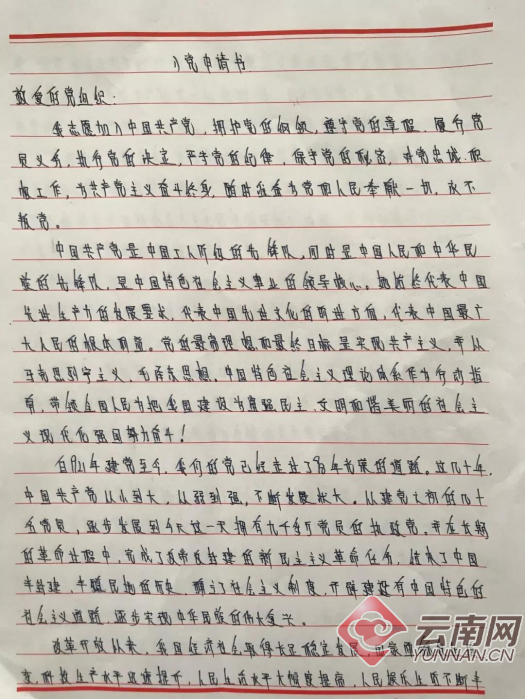 入党申请书
敬爱的党组织：
我志愿加入中国共产党，拥护党的纲领，遵守党的章程，履行党
员义务，执行党的决定，严守党的纪律，保守党的秘密，对党忠诚，积
极工作，为共产主义奋斗终身，随时准备为党和人民牺牲一切，永不
叛党。
中国共产党是中国工人阶级的先锋队，同时是中国人民和中华民
族的先锋队，是中国特色社会主义事业的领导核心。她始终代表中国
先进生产力的发展要求，代表中国先进文化的前进方向，代表中国最广
大人民的根本利益。党的最高理想和最终目标是实现共产主义，并以
马克思列宁主义、毛泽东思想、中国特色社会主义理论体系作为行动指
南，带领全国人民为把我国建设为富强民主、文明和谐美丽的社会主
义现代化强国努力奋斗！
自1921年建党至今，我们的党已经走过了96年光荣的道路。这几十年，
中国共产党从小到大，从弱到强，不断发展壮大。从建党之初的几十
名党员，逐步发展到今天这一天拥有九千万党员的执政党。并在长期
的革命过程中，完成了反帝反封建的新民主主义革命任务，结束了中国
半封建、半殖民地的历史，确立了社会主义制度，开辟建设有中国特色的
社会主义道路，逐步实现中华民族的伟大复兴。
改革开放以来，我国经济社会取得长足稳定发展，
科技生产水平迅速提升，人民生活水平大幅度提高，人民娱乐生活不断丰
云南网
YUNNAN.CN